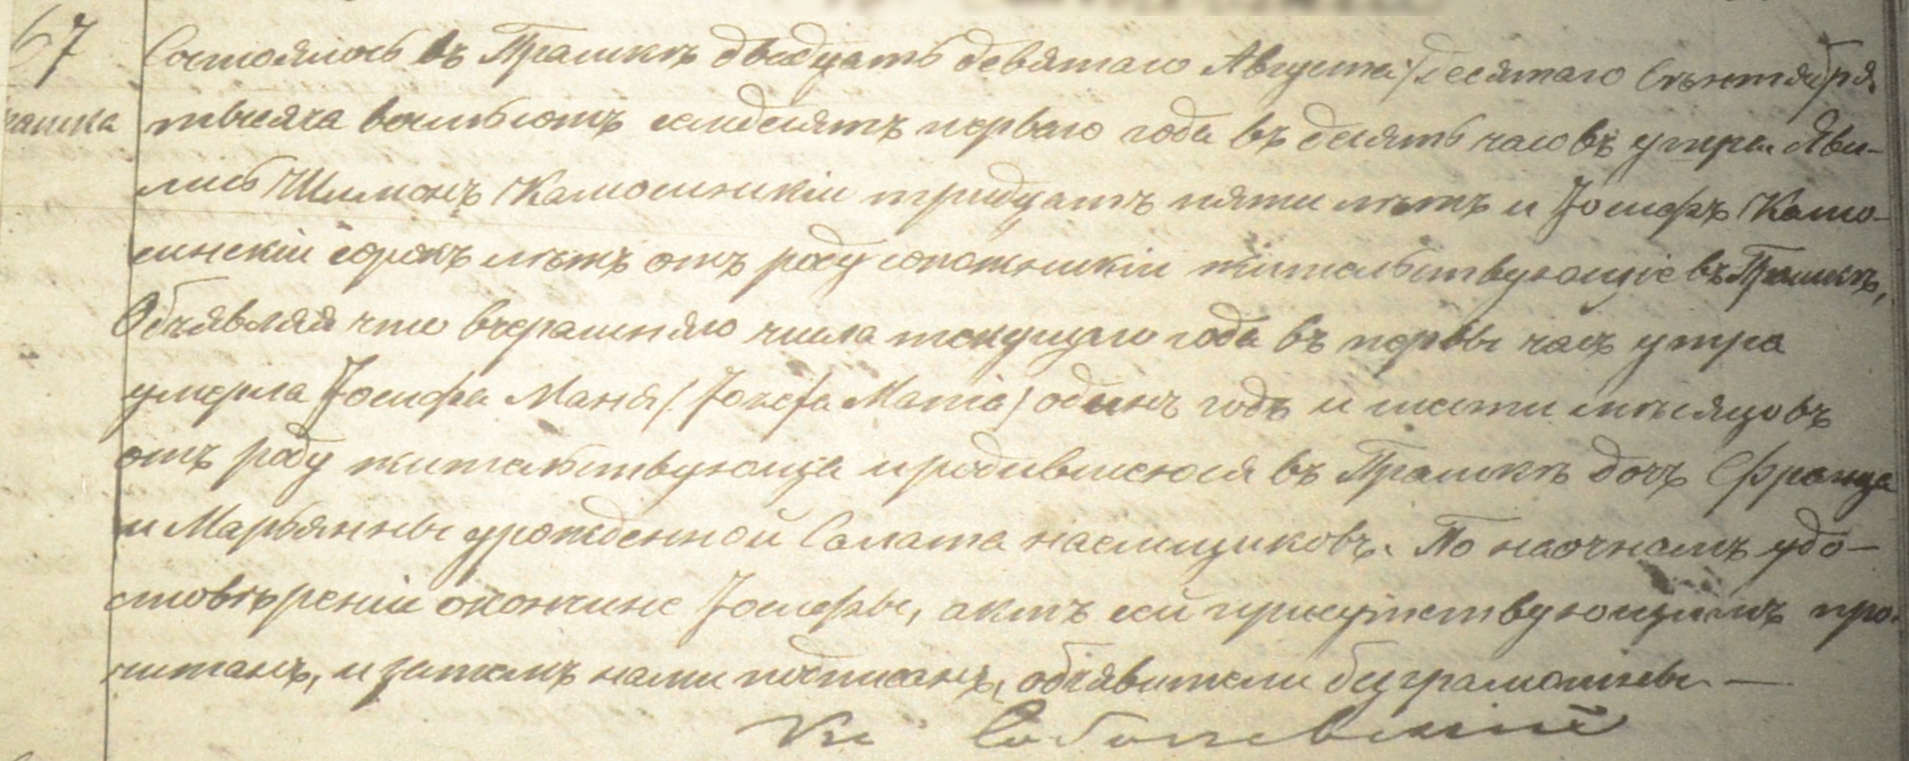 67
Состоялось въ Прашкѣ двадцать девятаго Августа/десятаго Сѣнтября
рашка
тысяча восмьсотъ семдесятъ перваго года въ десять часовъ утра. Яви-
лись Шимонъ Камосинскiи тридцать пяти лѣтъ и Іосифъ Камо-
синскiи сорокъ лѣтъ отъ роду сапожникiи жительствующiе въ Прашкѣ,
Объявляя что вчерашняго числа текущаго года въ первы часъ утра
умерла Іосифа Маня /Jozefa Mania/ одинъ годъ и шести мѣсяцовъ
отъ роду жительствующа и родившеюся въ Прашкѣ дочь Франца
и Марьянны урожденной Салата наемщиковъ. По наочномъ удо-
стовѣренiи окончине Іосифы, актъ сеи присутствующимъ про-
читанъ, и затемъ нами подписанъ, объявители безграмотны —
Кс Соболевскiй